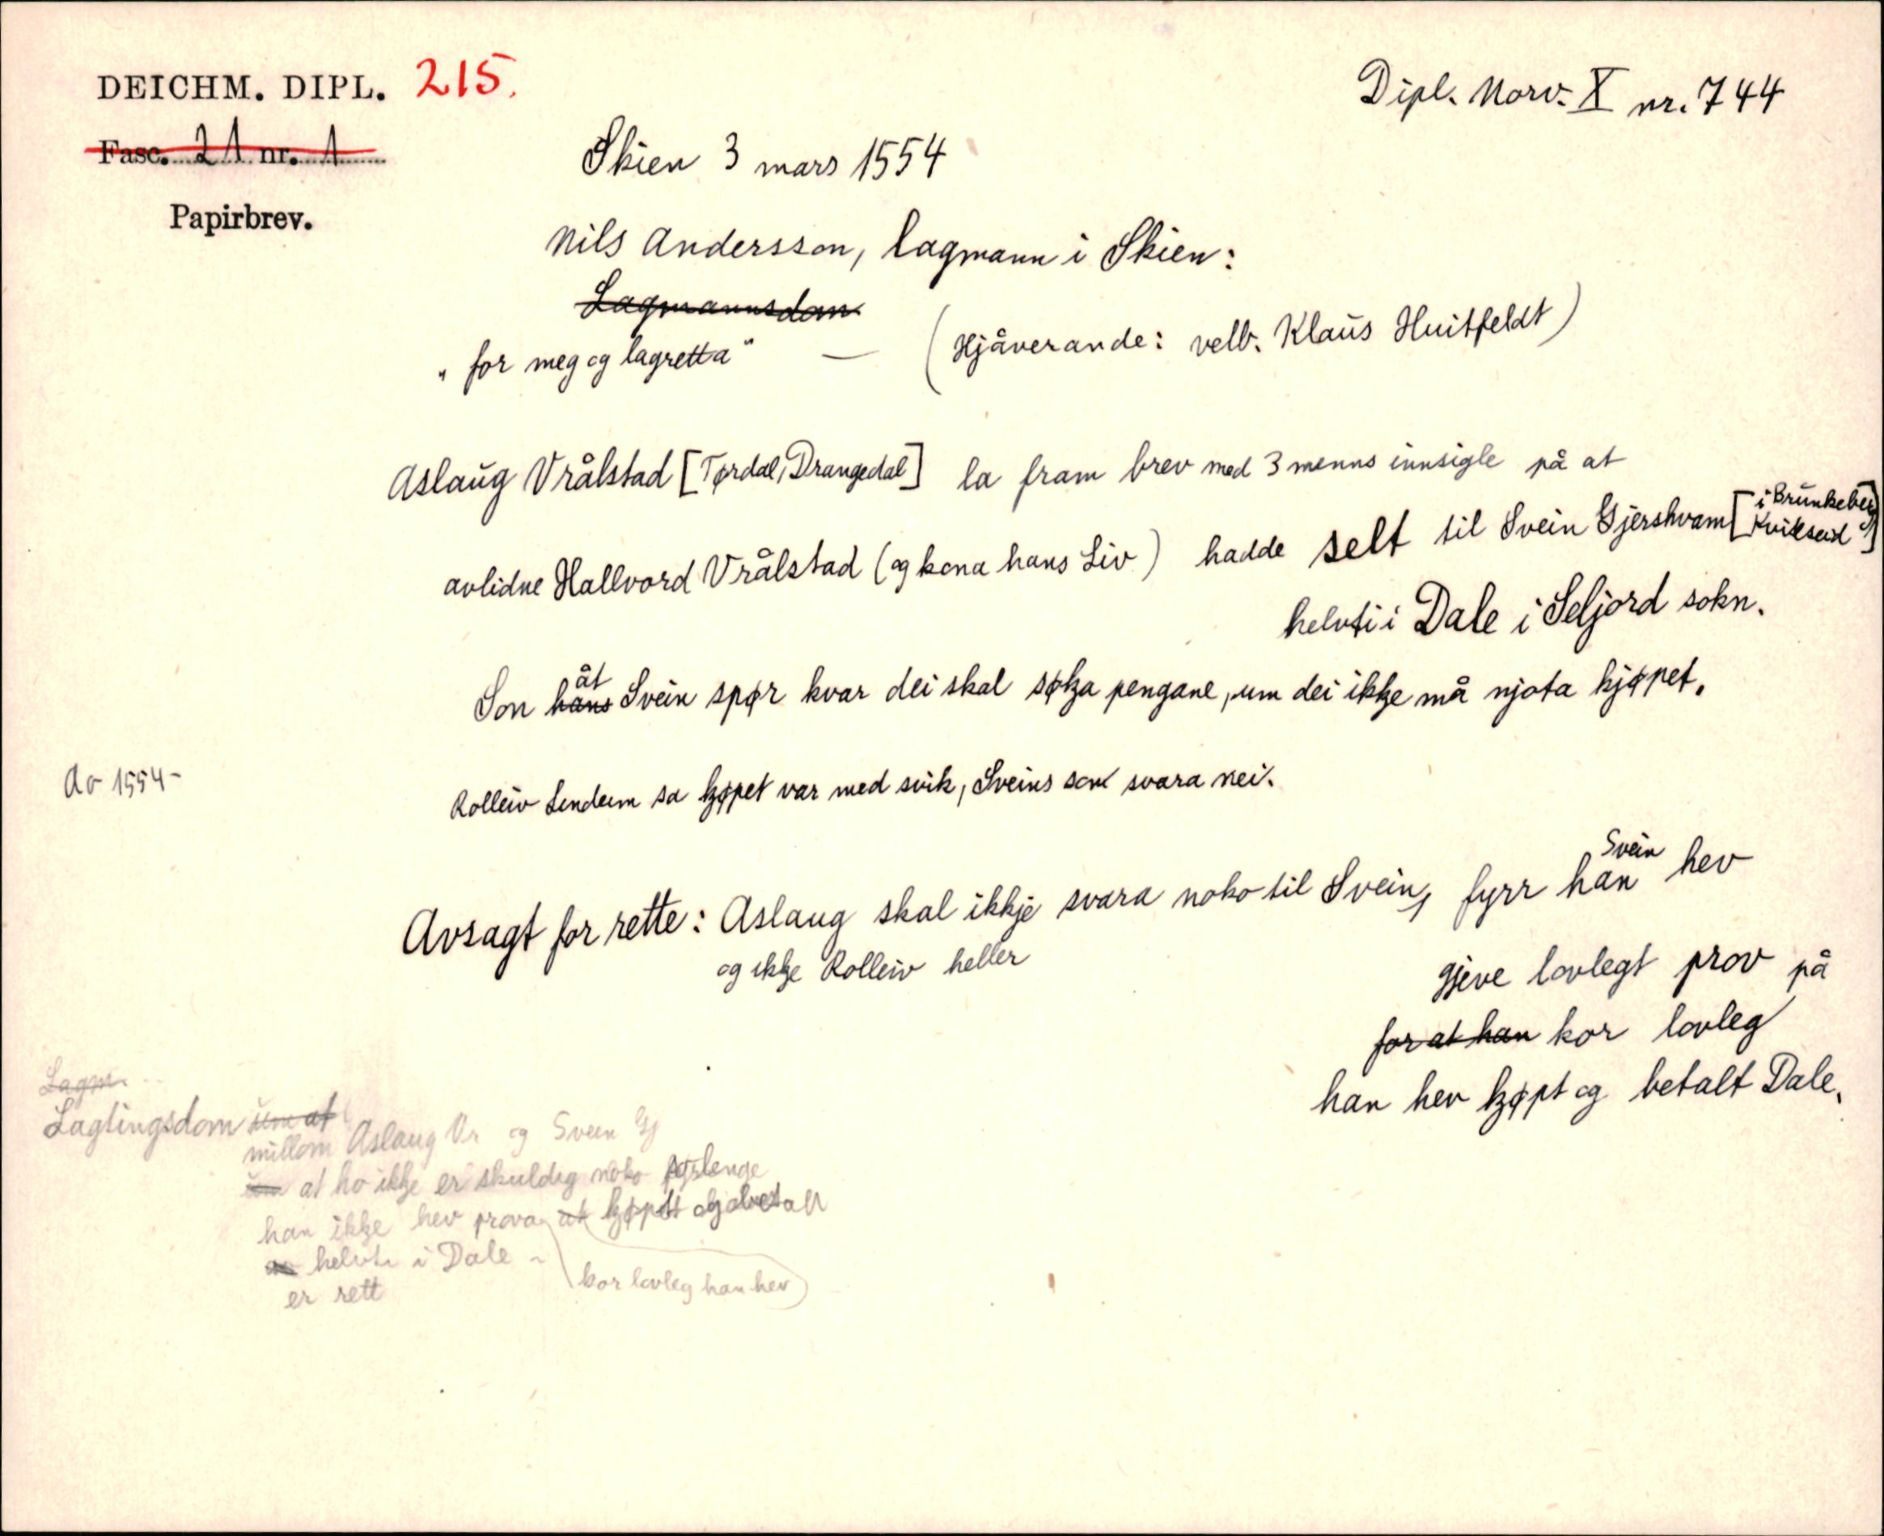 DEICHM. DIPL. 215.
Dipl. Norv. X nr. 744
Fasc. 21 nr. 1
Papirbrev.
Skien 3 mars 1554
Nils Andersson, lagmann i Skien:
Lagmannsdom
"for meg og lagretta" — (Hjåverande: velb. Klaus Huitfeldt)
Aslaug Vrålstad [Tørdal, Drangedal] la fram brev med 3 menns innsigle på at
avlidne Hallvord Vrålstad (og kona hans Liv) hadde selt til Svein Gjershvam [i Brunkeberg, Kviteseid]
helvti i Dale i Seljord sokn.
Son hans åt Svein spør kvar dei skal søkja pengane, um dei ikkje må njota kjøpet.
Av 1554-
Rolleiv Lindum sa kjøpet var med svik, Sveins son svara nei.
Avsagt for rette: Aslaug skal ikkje svara noko til Svein, fyrr han Svein hev
og ikkje Rolleiv heller
gjeve lovlegt prov på
for at han kor lovleg
han hev kjøpt og betalt Dale.
Lagm.
Lagtingsdom um at
millom Aslaug Vr og Svein Gj
um at ho ikkje er skuldig noko so lenge
han ikkje hev prova at kjøpet og betalt
helvti i Dale -
er rett
kor lovleg han hev